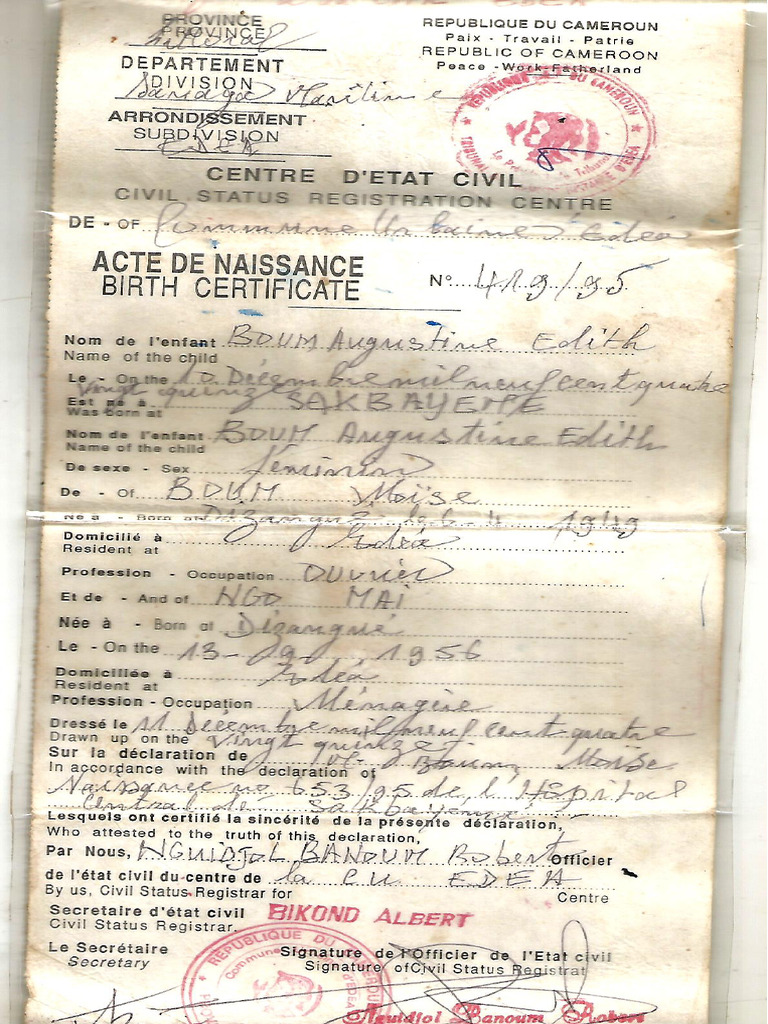 PROVINCE
PROVINCE
Littoral
DEPARTEMENT
DIVISION
Sanaga Maritime
ARRONDISSEMENT
SUBDIVISION
EDEA
REPUBLIQUE DU CAMEROUN
Paix - Travail - Patrie
REPUBLIC OF CAMEROON
Peace - Work - Fatherland
REPUBLIQUE DU CAMEROUN
CENTRE D'ETAT CIVIL
CIVIL STATUS REGISTRATION CENTRE
DE - OF Commune Urbaine d'Edéa
ACTE DE NAISSANCE
BIRTH CERTIFICATE
N° 419/95
Nom de l'enfant BOUM Augustine Edith
Name of the child
Le - On the 10 Décembre mil neuf cent quatre
vingt quinze
Est né à SAKBAYEME
Was born at
Nom de l'enfant BOUM Augustine Edith
Name of the child
De sexe - Sex féminin
De - Of BOUM Moïse
Né à - Born at Dizangué 1949
Domicilié à Edéa
Resident at
Profession - Occupation Ouvrier
Et de - And of NGO MAI
Née à - Born at Dizangué
Le - On the 13-9-1956
Domiciliée à Edéa
Resident at
Profession - Occupation Ménagère
Dressé le 11 Décembre mil neuf cent quatre
Drawn up on the vingt quinze
Sur la déclaration de Boum Moïse
In accordance with the declaration of
Naissance no 653/95 de l'Hôpital
Central de Sakbayémé
Lesquels ont certifié la sincérité de la présente déclaration,
Who attested to the truth of this declaration,
Par Nous, NGUIDJOL BANOUM Robert Officier
de l'état civil du centre de la CU EDEA
By us, Civil Status Registrar for Centre
Secretaire d'état civil BIKOND ALBERT
Civil Status Registrar.
Le Secrétaire
Secretary
Signature de l'Officier de l'Etat civil
Signature of Civil Status Registrat
REPUBLIQUE DU CAMEROUN
Nguidjol Banoum Robert